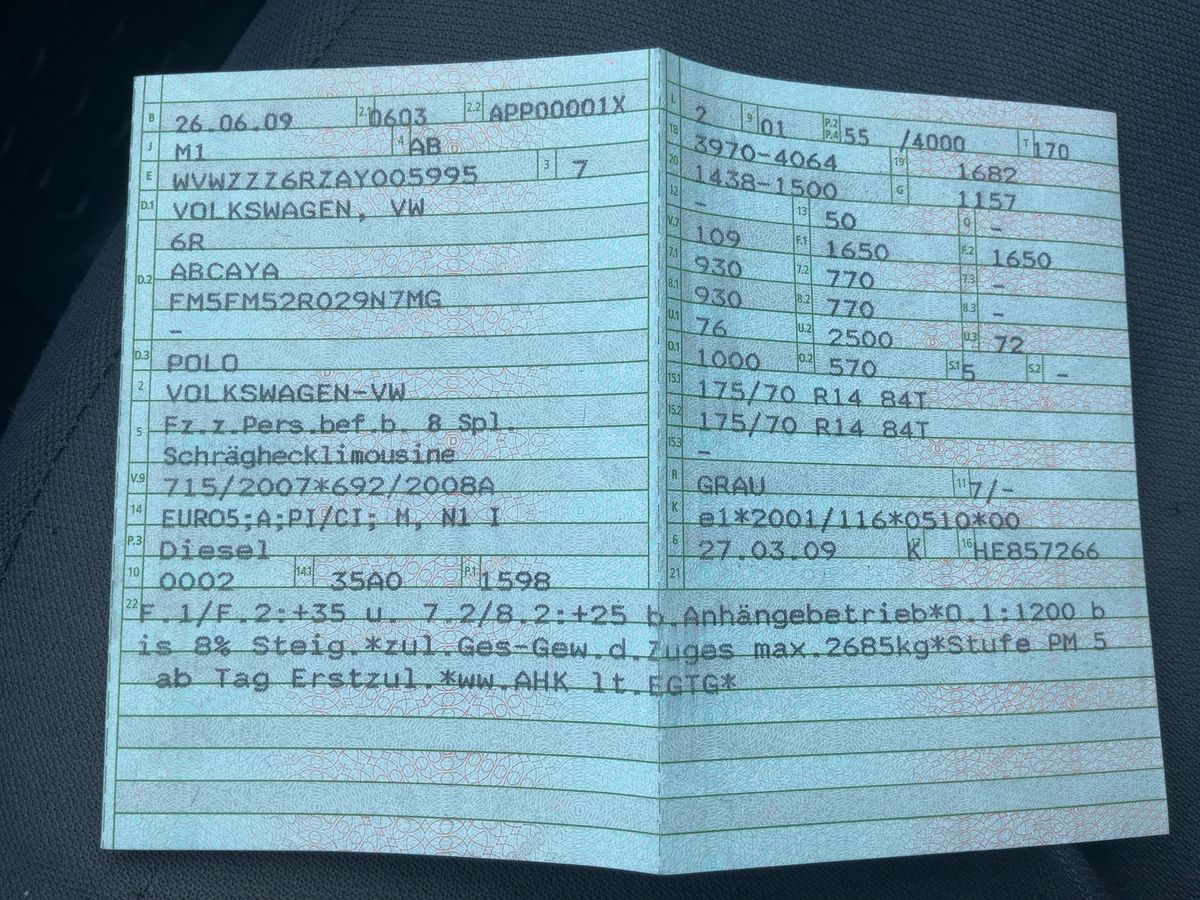 B 26.06.09 2.1 0603 2.2 APP00001X
J M1 4 AB
E WVWZZZ6RZAY005995 3 7
D.1 VOLKSWAGEN, VW
6R
D.2 ABCAYA
FM5FM52R029N7MG
–
D.3 POLO
2 VOLKSWAGEN-VW
5 Fz.z.Pers.bef.b. 8 Spl.
Schräghecklimousine
V.9 715/2007*692/2008A
14 EURO5;A;PI/CI; M, N1 I
P.3 Diesel
10 0002 14.1 35A0 P.1 1598
L 2 9 01 P.2 P.4 55 /4000 T 170
18 3970-4064 19 1682
20 1438-1500 G 1157
12 – 13 50 Q –
V.7 109 F.1 1650 F.2 1650
7.1 930 7.2 770 7.3 –
8.1 930 8.2 770 8.3 –
U.1 76 U.2 2500 U.3 72
O.1 1000 O.2 570 S.1 5 S.2 –
15.1 175/70 R14 84T
15.2 175/70 R14 84T
15.3 –
R GRAU 11 7/-
K e1*2001/116*0510*00
6 27.03.09 17 K 16 HE857266
21
22 F.1/F.2:+35 u. 7.2/8.2:+25 b.Anhängebetrieb*O.1:1200 b
is 8% Steig.*zul.Ges-Gew.d.Zuges max.2685kg*Stufe PM 5
ab Tag Erstzul.*ww.AHK lt.EGTG*